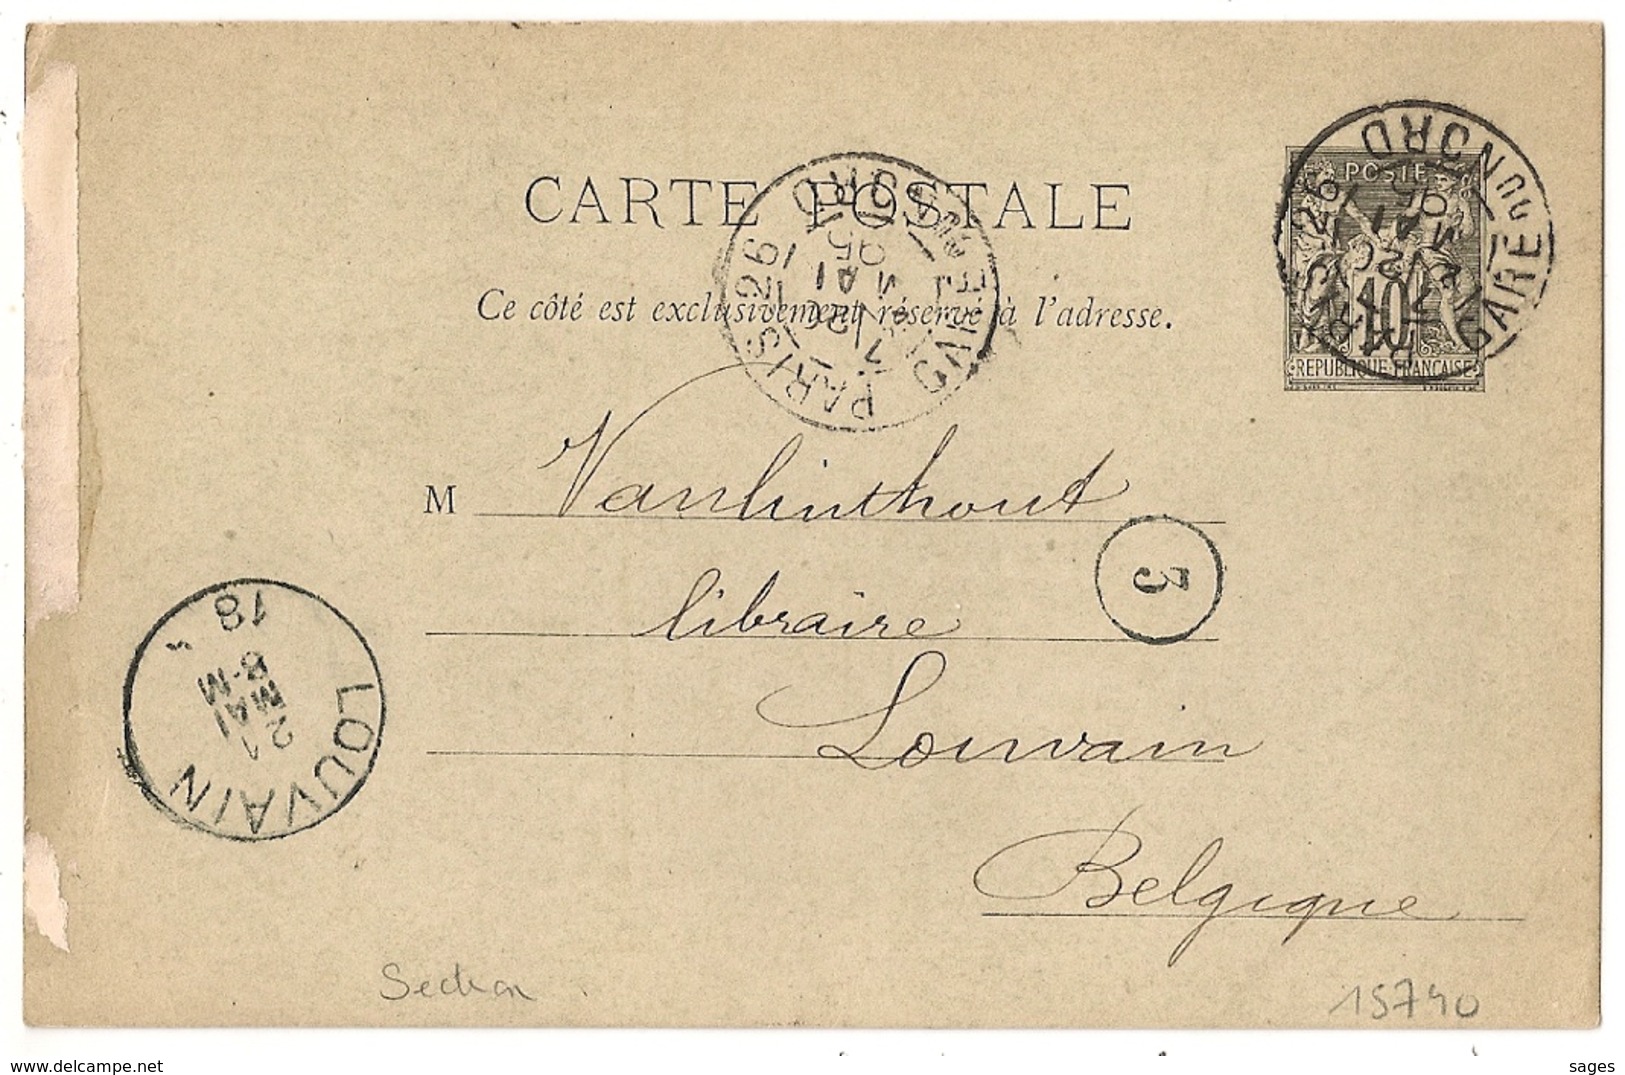 POSTE
10
REPUBLIQUE FRANÇAISE
GARE DU NORD
26
CARTE POSTALE
PARIS 26
GARE DU NORD
20 MAI 95
Ce côté est exclusivement réservé à l'adresse.
M Vanlinthout
3
libraire
Louvain
Belgique
LOUVAIN
21
MAI
8-M
18
Section
15740
sages